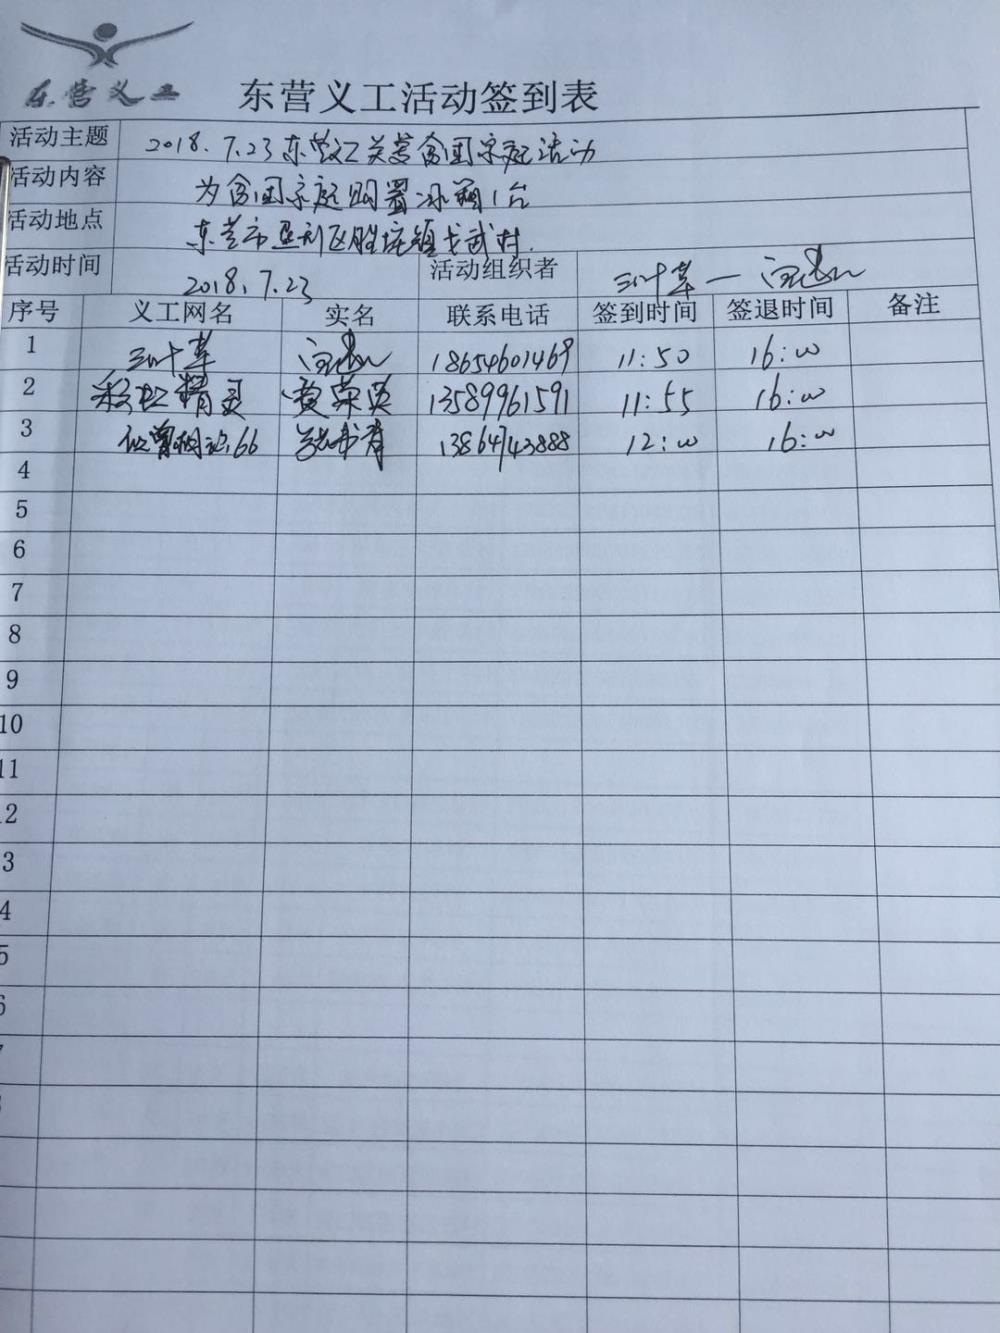 东营义工
东营义工活动签到表
活动主题 2018.7.23东营义工关爱贫困家庭活动
活动内容 为贫困家庭购置冰箱1台
活动地点 东营市垦利区胜坨镇戈武村.
活动时间 2018.7.23 活动组织者 三叶草—
序号 义工网名 实名 联系电话 签到时间 签退时间 备注
1 三叶草 18654601469 11:50 16:00
2 彩虹精灵 黄荣英 13589961591 11:55 16:00
3 似曾相识66 13864743888 12:00 16:00
4
5
6
7
8
9
10
11
12
3
4
5
6
7